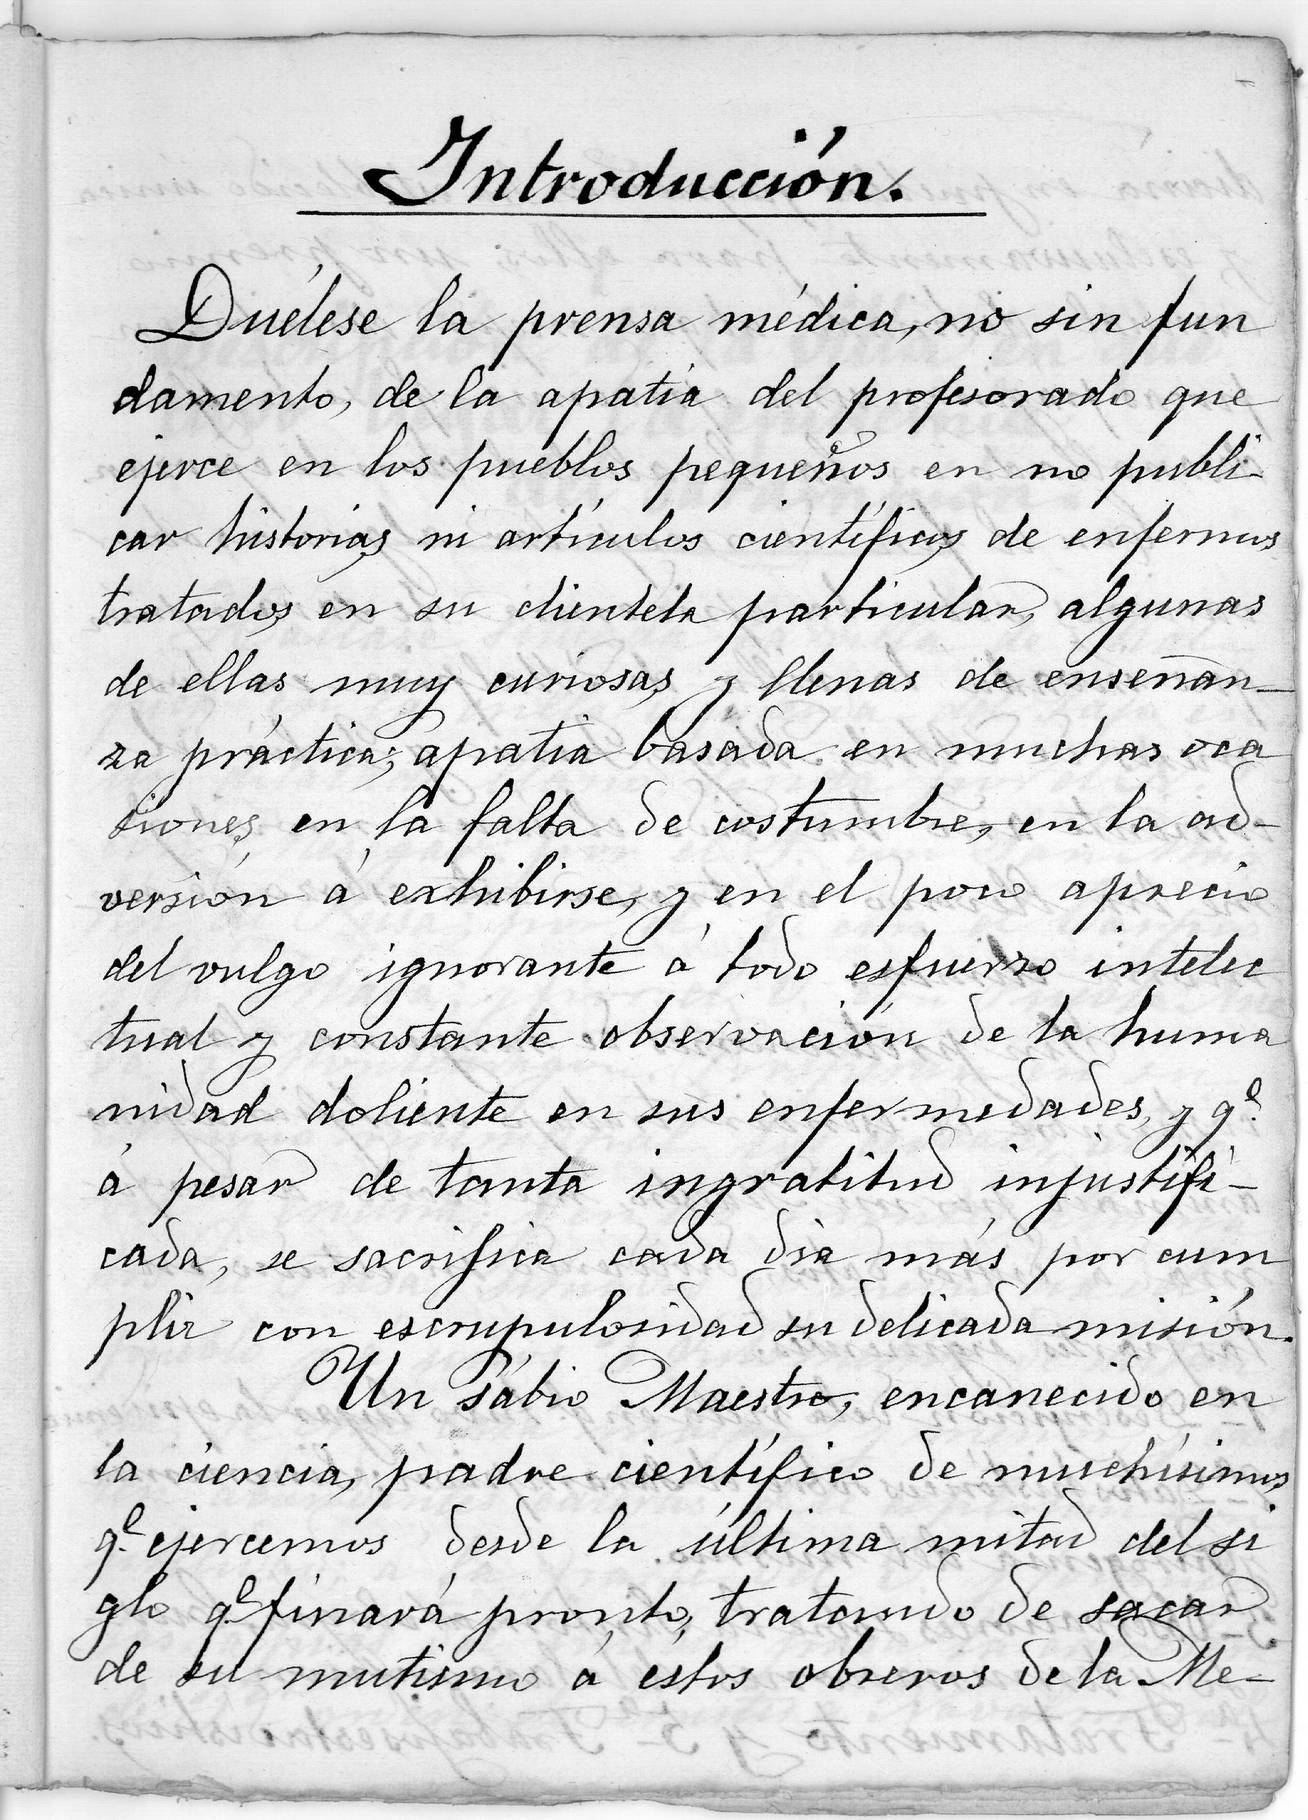 Introducción.
Duélese la prensa médica, no sin fun
damento, de la apatía del profesorado que
ejerce en los pueblos pequeños en no publi-
car historias ni artículos científicos de enfermos
tratados en su clientela particular, algunas
de ellas muy curiosas y llenas de enseñan-
za práctica; apatía basada en muchas oca
siones en la falta de costumbre, en la ad-
versión á exhibirse, y en el poco aprecio
del vulgo ignorante á todo esfuerzo intelec
tual y constante observación de la huma
nidad doliente en sus enfermedades, y qᵉ.
á pesar de tanta ingratitud injustifi-
cada, se sacrifica cada dia más por cum
plir con escrupulosidad su delicada misión.
Un sábio Maestro, encanecido en
la ciencia, padre científico de muchísimos
qᵉ. ejercemos desde la última mitad del si
glo qᵉ. finará pronto, tratando de sacar
de su mutismo á éstos obreros de la Me-